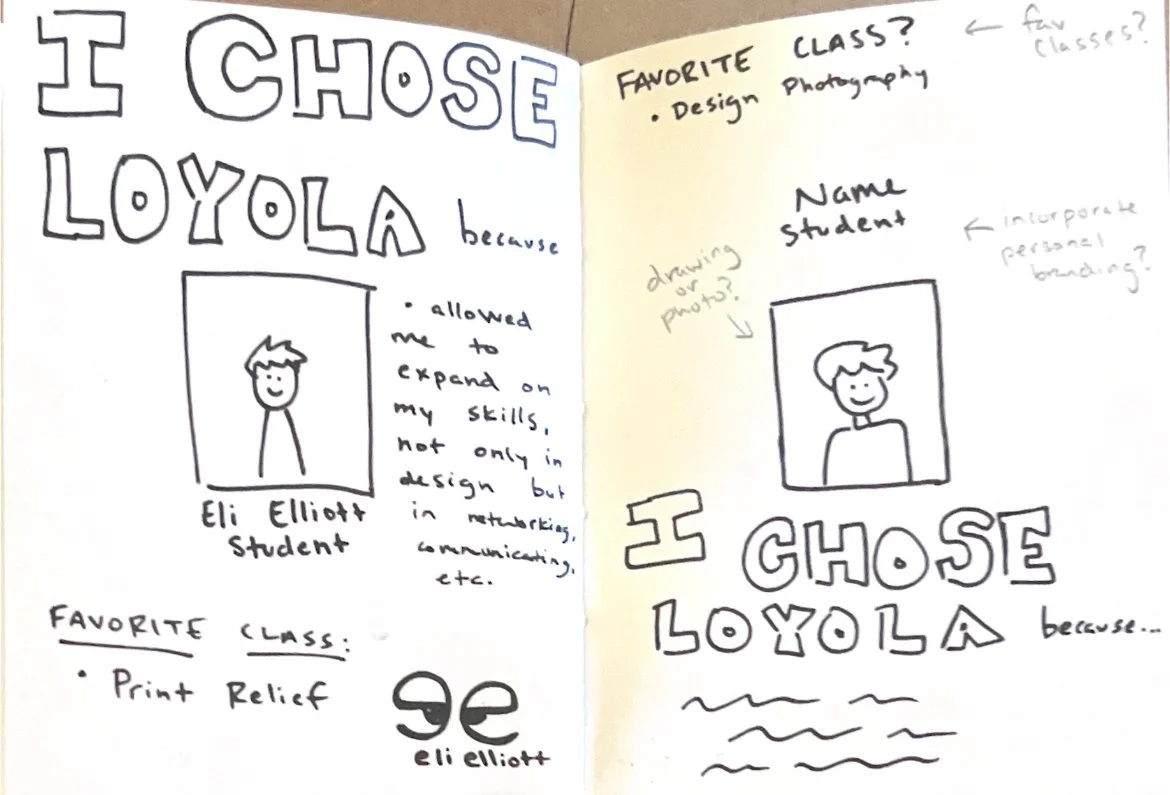 I CHOSE
LOYOLA because
• allowed
me to
expand on
my skills,
not only in
design but
in networking,
communicating,
etc.
Eli Elliott
Student
FAVORITE CLASS:
• Print Relief
ee
eli elliott
FAVORITE CLASS?
• Design Photography
← fav
classes?
Name
Student
← incorporate
personal
branding?
drawing
or
photo?
I CHOSE
LOYOLA because...